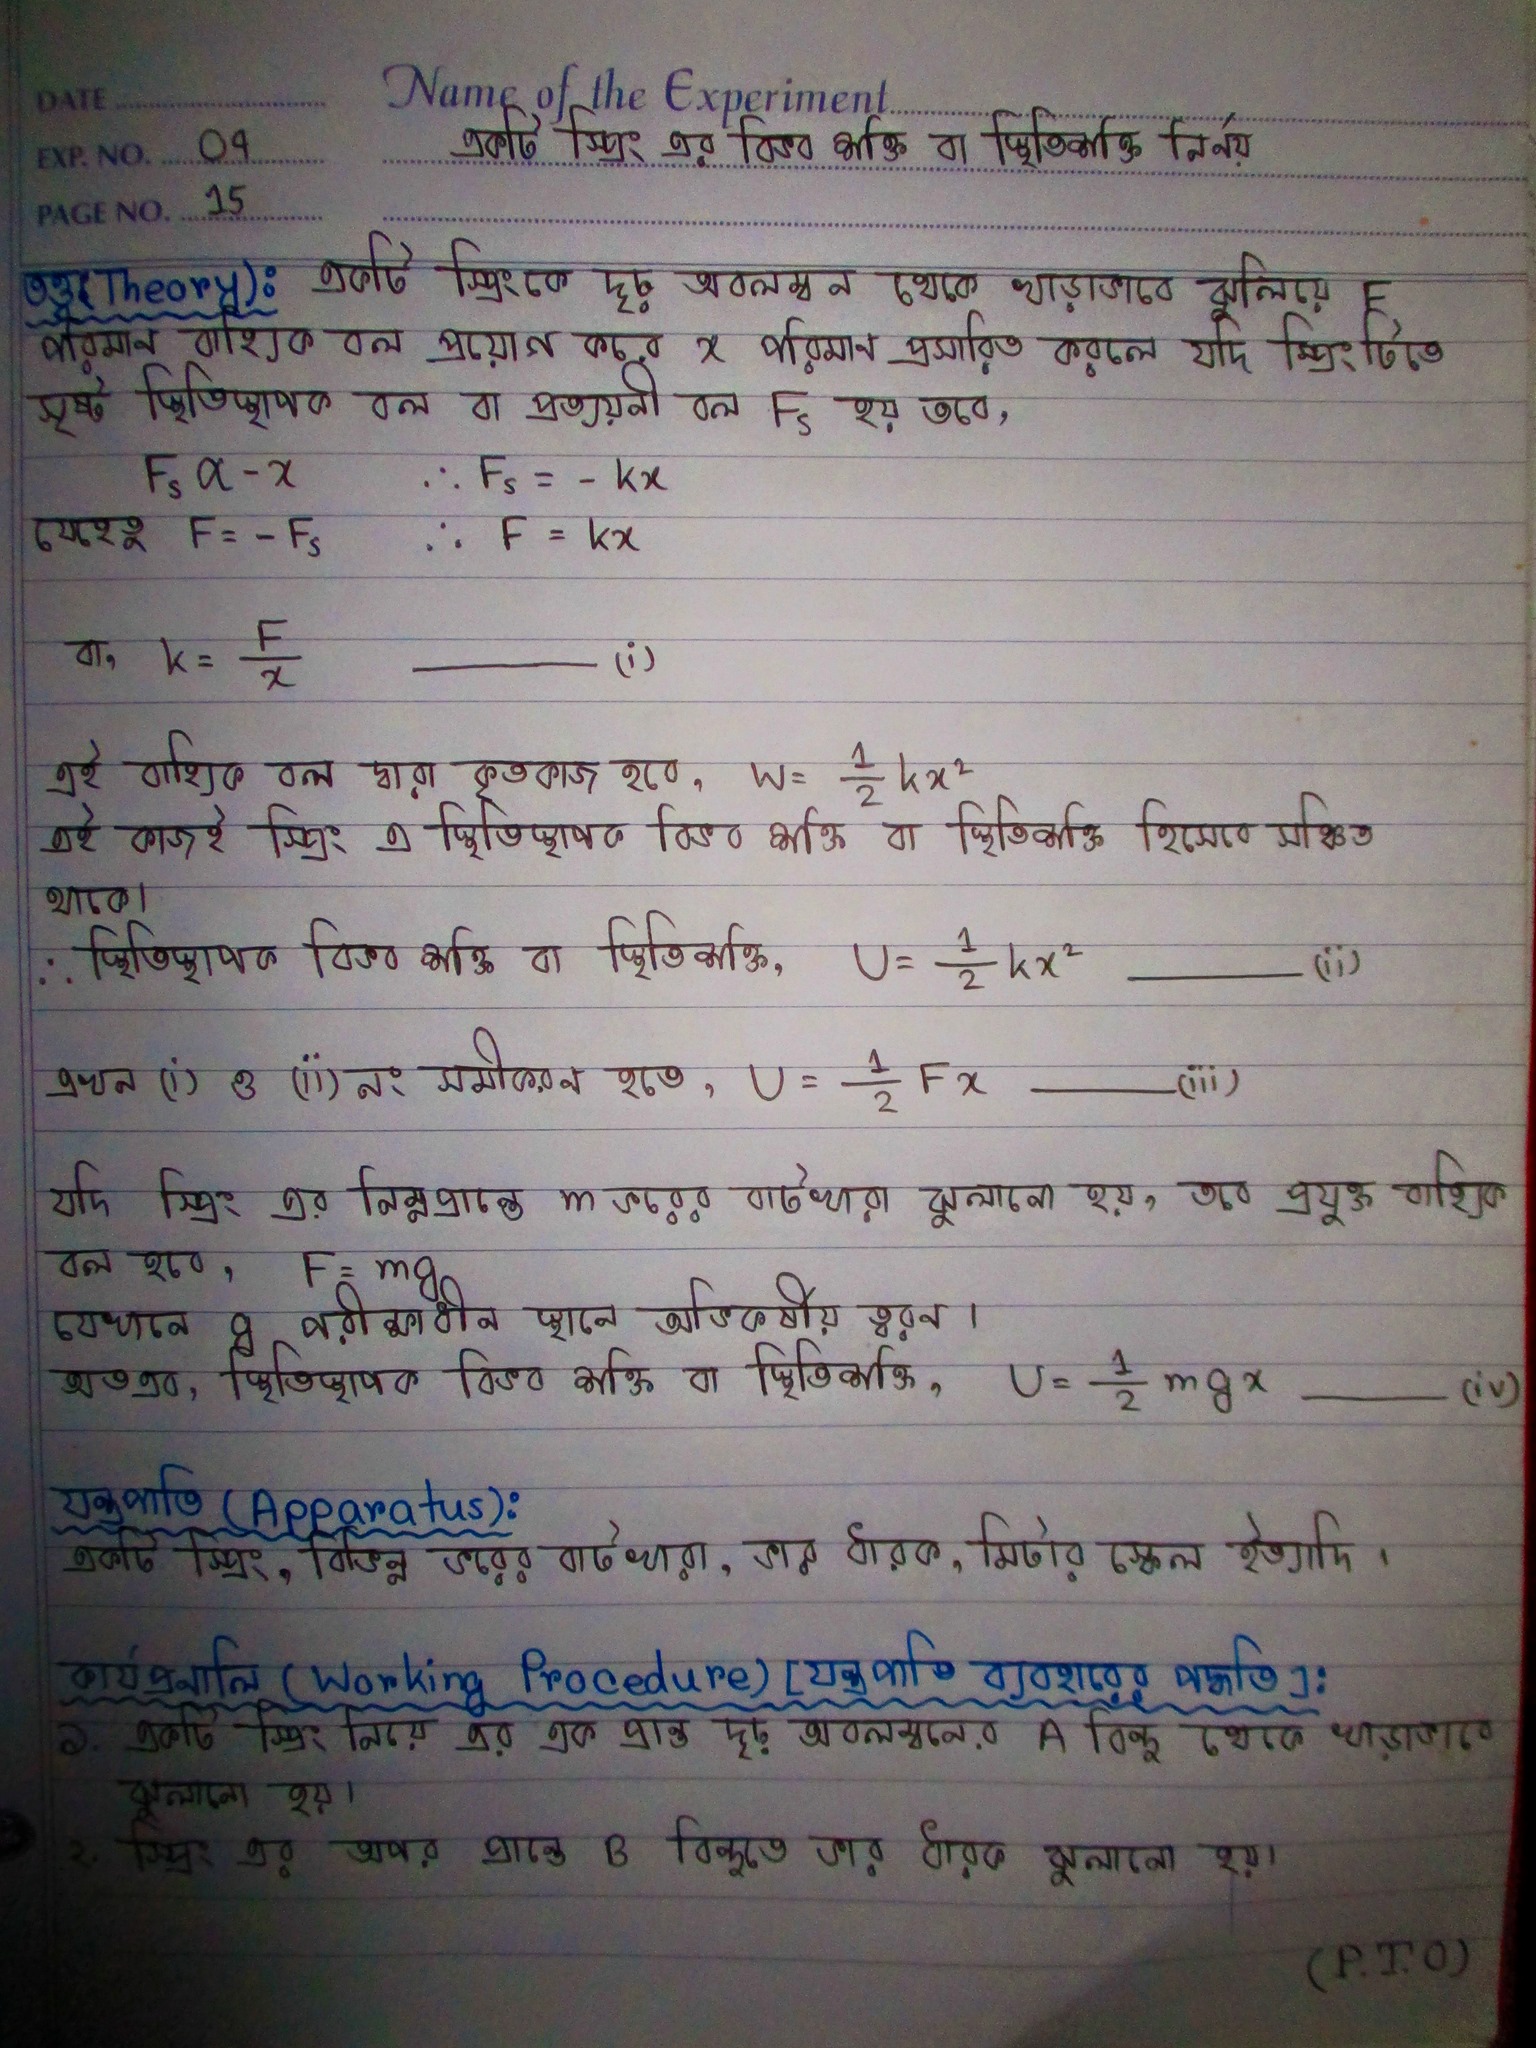 DATE
Name of the Experiment
EXP. NO. 04
একটি স্প্রিং এর বিভব শক্তি বা স্থিতিশক্তি নির্নয়
PAGE NO. 15
তত্ত্ব(Theory): একটি স্প্রিংকে দৃঢ় অবলম্বন থেকে খাড়াভাবে ঝুলিয়ে F
পরিমান বাহ্যিক বল প্রয়োগ করে x পরিমান প্রসারিত করলে যদি স্প্রিংটিতে
সৃষ্ট স্থিতিস্থাপক বল বা প্রত্যয়নী বল Fₛ হয় তবে,
Fₛ α - x ∴ Fₛ = - kx
যেহেতু F = - Fₛ ∴ F = kx
বা, k = F/x ——— (i)
এই বাহ্যিক বল দ্বারা কৃতকাজ হবে, W = 1/2 kx²
এই কাজই স্প্রিং এ স্থিতিস্থাপক বিভব শক্তি বা স্থিতিশক্তি হিসেবে সঞ্চিত
থাকে।
∴ স্থিতিস্থাপক বিভব শক্তি বা স্থিতিশক্তি, U = 1/2 kx² ——— (ii)
এখন (i) ও (ii) নং সমীকরন হতে, U = 1/2 Fx ——— (iii)
যদি স্প্রিং এর নিম্নপ্রান্তে m ভরের বাটখারা ঝুলানো হয়, তবে প্রযুক্ত বাহ্যিক
বল হবে, F = mg
যেখানে g পরীক্ষাধীন স্থানে অভিকর্ষীয় ত্বরন।
অতএব, স্থিতিস্থাপক বিভব শক্তি বা স্থিতিশক্তি, U = 1/2 mgx ——— (iv)
যন্ত্রপাতি (Apparatus):
একটি স্প্রিং, বিভিন্ন ভরের বাটখারা, ভার ধারক, মিটার স্কেল ইত্যাদি।
কার্যপ্রনালি (Working Procedure) [যন্ত্রপাতি ব্যবহারের পদ্ধতি]:
১. একটি স্প্রিং নিয়ে এর এক প্রান্ত দৃঢ় অবলম্বনের A বিন্দু থেকে খাড়াভাবে
ঝুলানো হয়।
২. স্প্রিং এর অপর প্রান্তে B বিন্দুতে ভার ধারক ঝুলানো হয়।
(P.T.O)